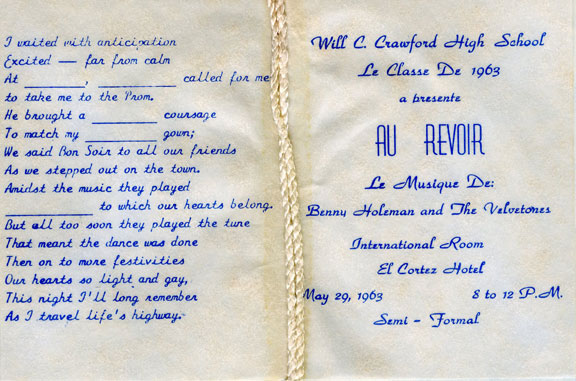 I waited with anticipation
Excited — far from calm
At ________, __________ called for me
to take me to the Prom.
He brought a _________ coursage
To match my __________ gown;
We said Bon Soir to all our friends
As we stepped out on the town.
Amidst the music they played
____________ to which our hearts belong.
But all too soon they played the tune
That meant the dance was done
Then on to more festivities
Our hearts so light and gay,
This night I'll long remember
As I travel life's highway.
Will C. Crawford High School
Le Classe De 1963
a presente
AU REVOIR
Le Musique De:
Benny Holeman and The Velvetones
International Room
El Cortez Hotel
May 29, 1963 8 to 12 P.M.
Semi - Formal